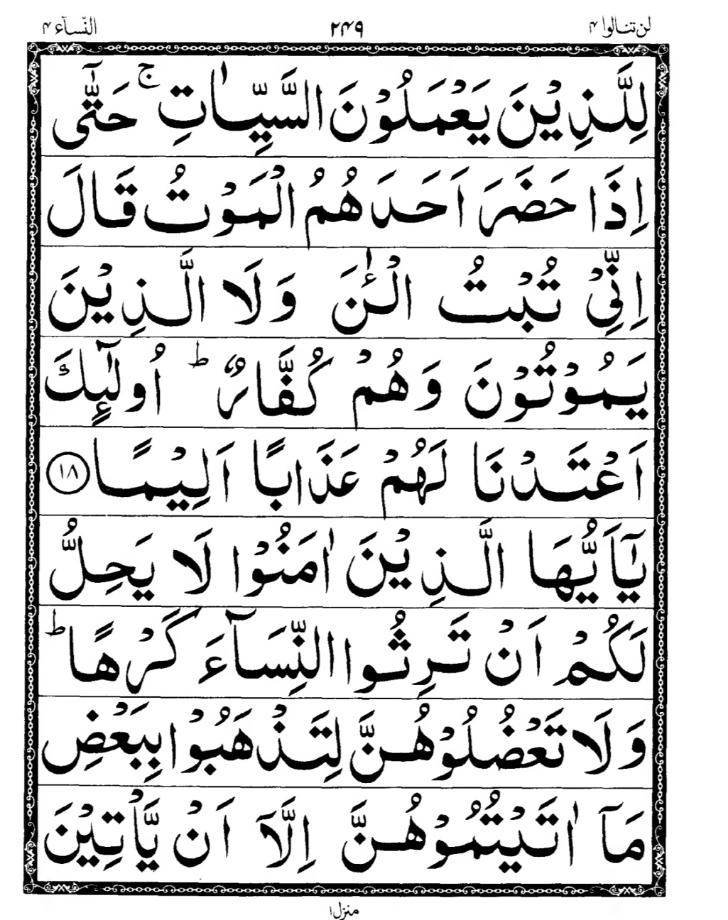 لن تنالوا ۴ ۲۴۹ النسآء ۴
لِلَّذِیْنَ یَعْمَلُوْنَ السَّیِّاٰتِ ۚ حَتّٰۤی
اِذَا حَضَرَ اَحَدَهُمُ الْمَوْتُ قَالَ
اِنِّیْ تُبْتُ الْـٰٔنَ وَلَا الَّذِیْنَ
یَمُوْتُوْنَ وَهُمْ كُفَّارٌ ؕ اُولٰٓئِكَ
اَعْتَدْنَا لَهُمْ عَذَابًا اَلِیْمًا ۝۱۸
یٰۤاَیُّهَا الَّذِیْنَ اٰمَنُوْا لَا یَحِلُّ
لَكُمْ اَنْ تَرِثُوا النِّسَآءَ كَرْهًا ؕ
وَلَا تَعْضُلُوْهُنَّ لِتَذْهَبُوْا بِبَعْضِ
مَاۤ اٰتَیْتُمُوْهُنَّ اِلَّاۤ اَنْ یَّاْتِیْنَ
منزل ۱